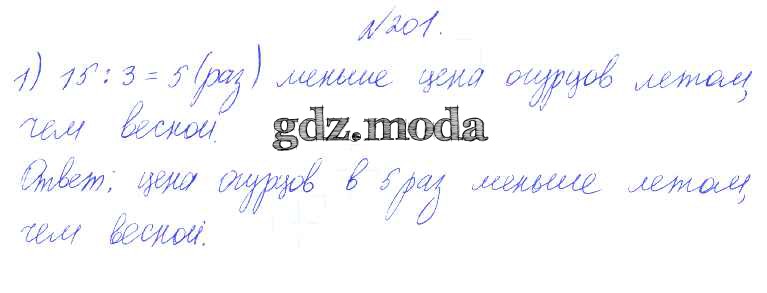 №201.
1) 15 : 3 = 5 (раз) меньше цена огурцов летом,
чем весной.
gdz.moda
Ответ: цена огурцов в 5 раз меньше летом,
чем весной.